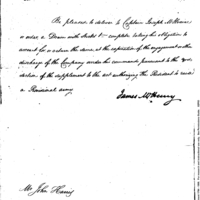 Be pleased to deliver to Captain Joseph McKinnie
or order a Drum with Sticks &c complete taking his obligation to
account for or return the same, at the expiration of the engagement or the
discharge of the Company under his command pursuant to the
dition of the supplement to the act authorizing the President to raise
a Provisional army
James McHenry
Mr John Harris